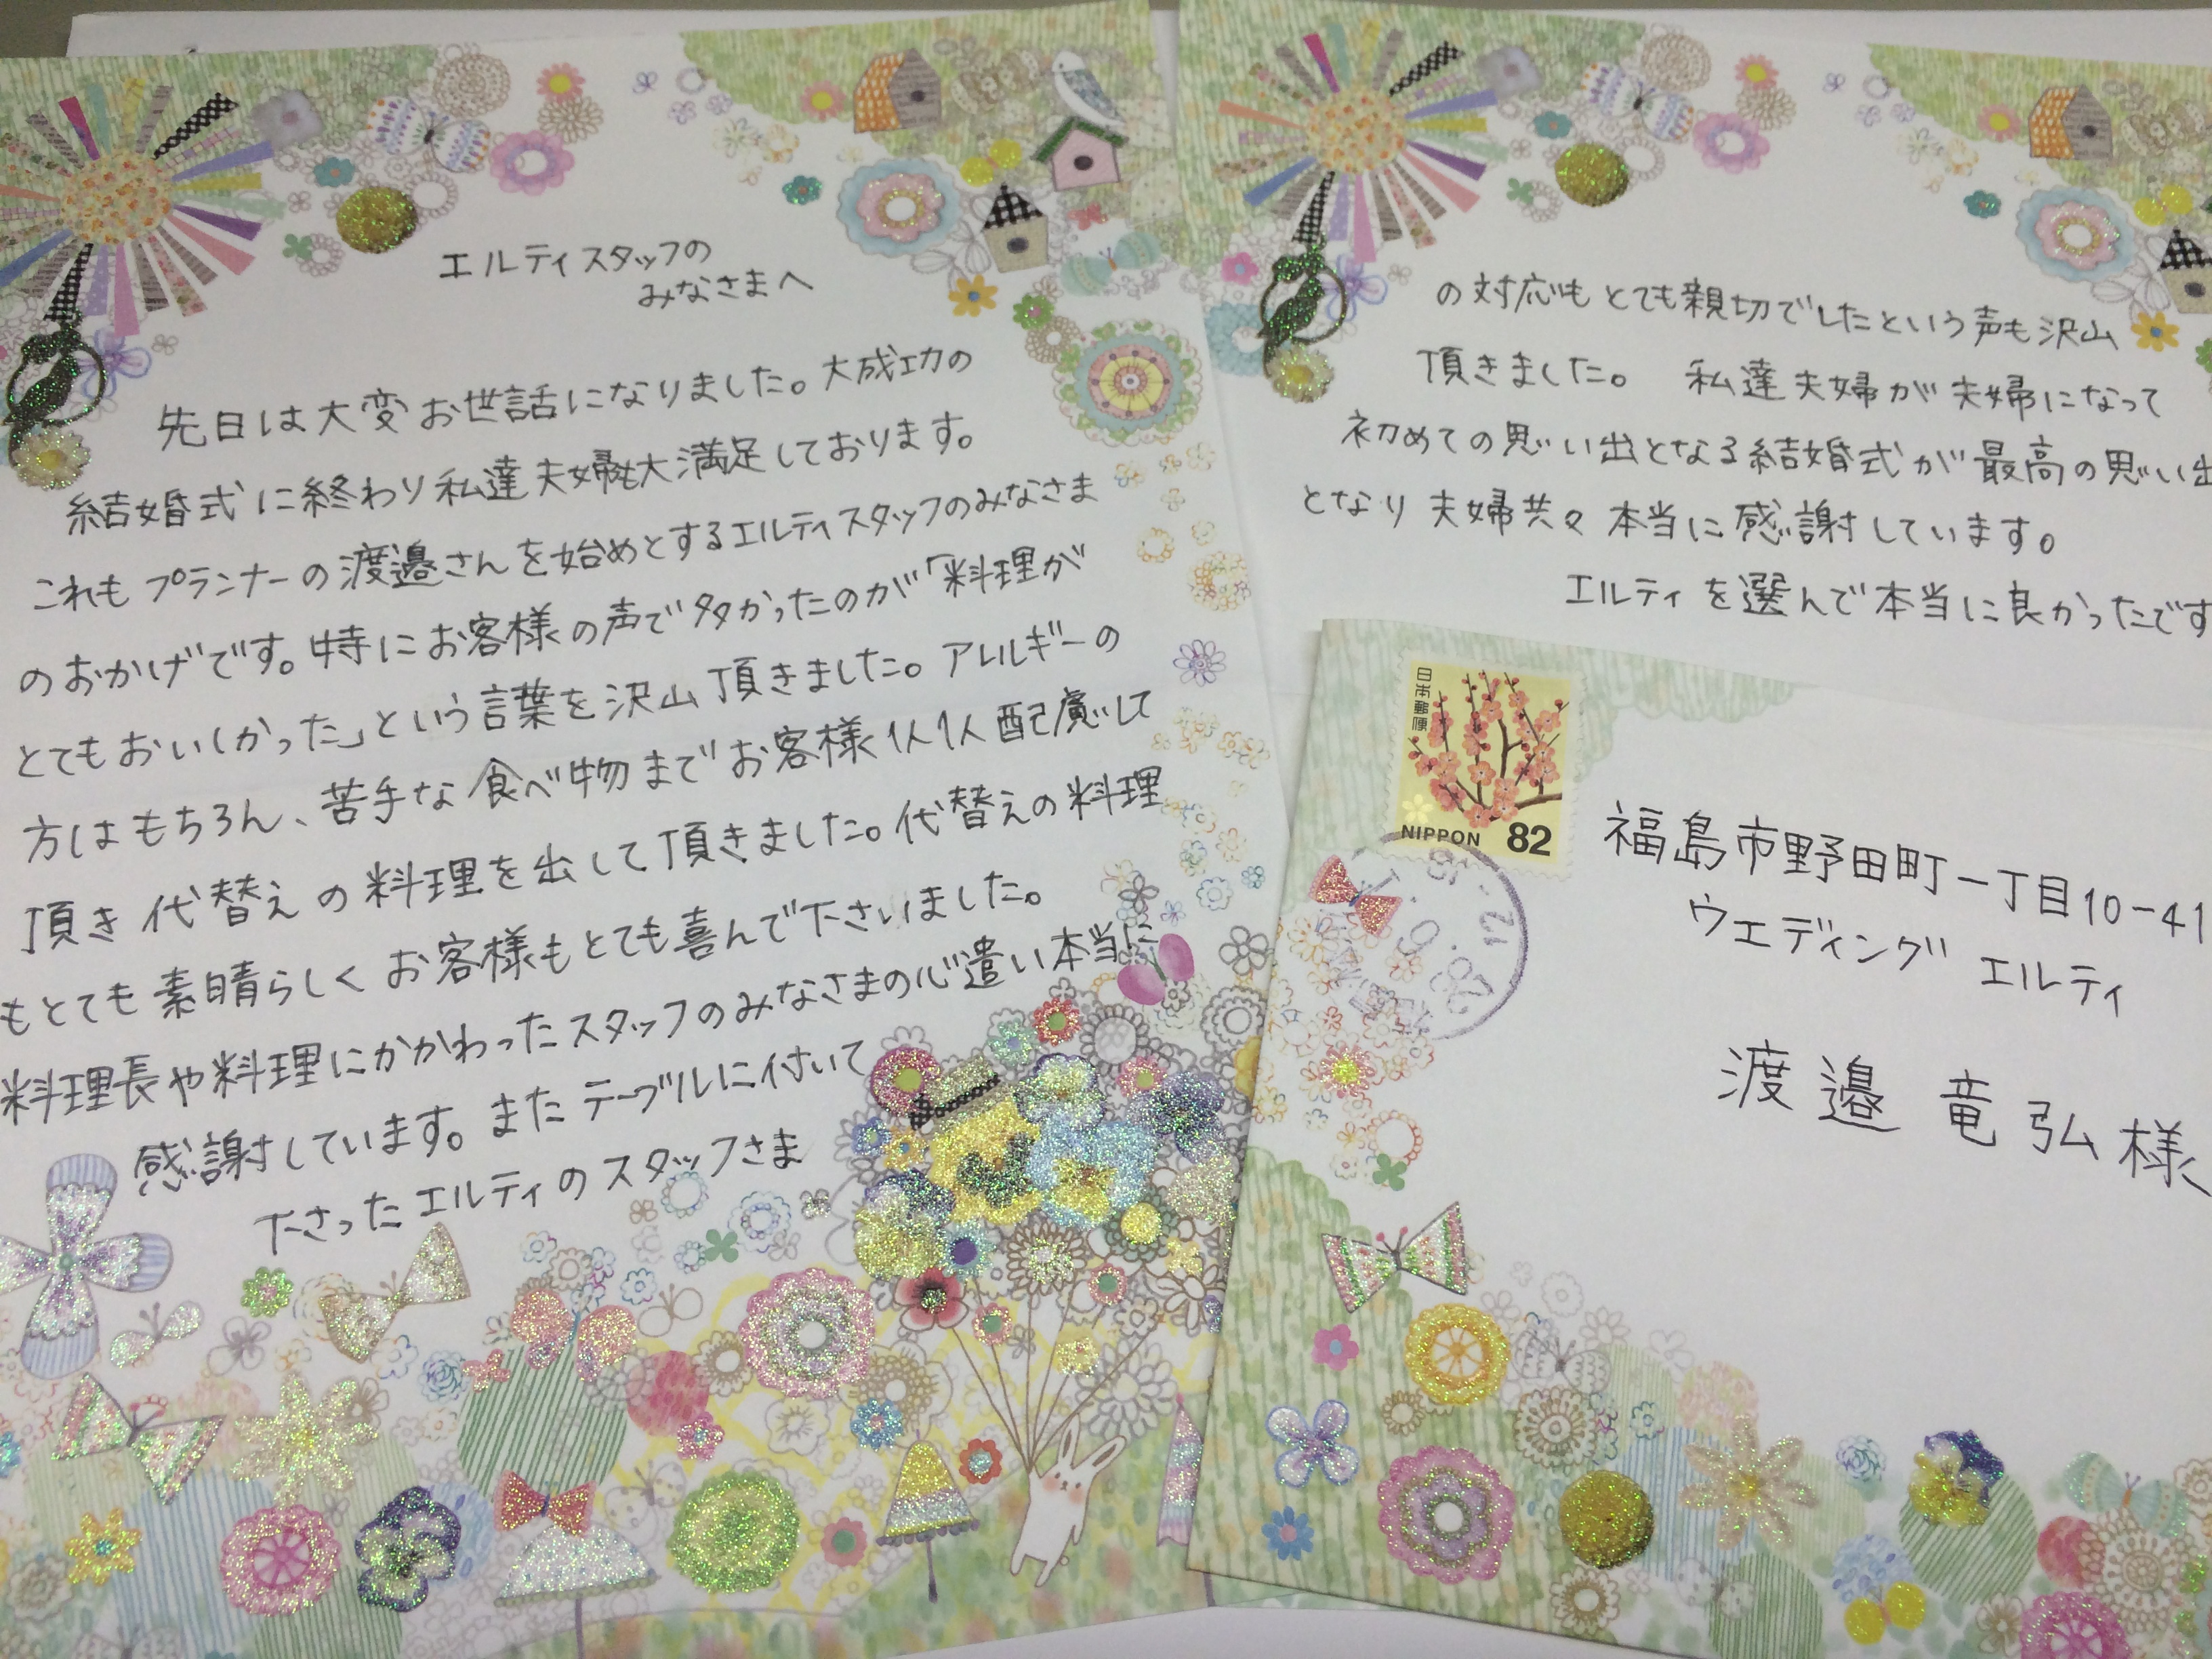 エルティスタッフの
みなさまへ
先日は大変お世話になりました。大成功の
結婚式に終わり私達夫婦も大満足しております。
これもプランナーの渡邉さんを始めとするエルティスタッフのみなさま
のおかげです。特にお客様の声で多かったのが「料理が
とてもおいしかった」という言葉を沢山頂きました。アレルギーの
方はもちろん、苦手な食べ物までお客様1人1人配慮して
頂き代替えの料理を出して頂きました。代替えの料理
もとても素晴らしくお客様もとても喜んで下さいました。
料理長や料理にかかわったスタッフのみなさまの心遣い本当に
感謝しています。またテーブルに付いて
下さったエルティのスタッフさま
の対応もとても親切でしたという声も沢山
頂きました。 私達夫婦が夫婦になって
初めての思い出となる結婚式が最高の思い出
となり夫婦共々本当に感謝しています。
エルティを選んで本当に良かったです
日本郵便
NIPPON 82
福島市野田町一丁目10-41
ウエディング エルティ
渡邉竜弘様